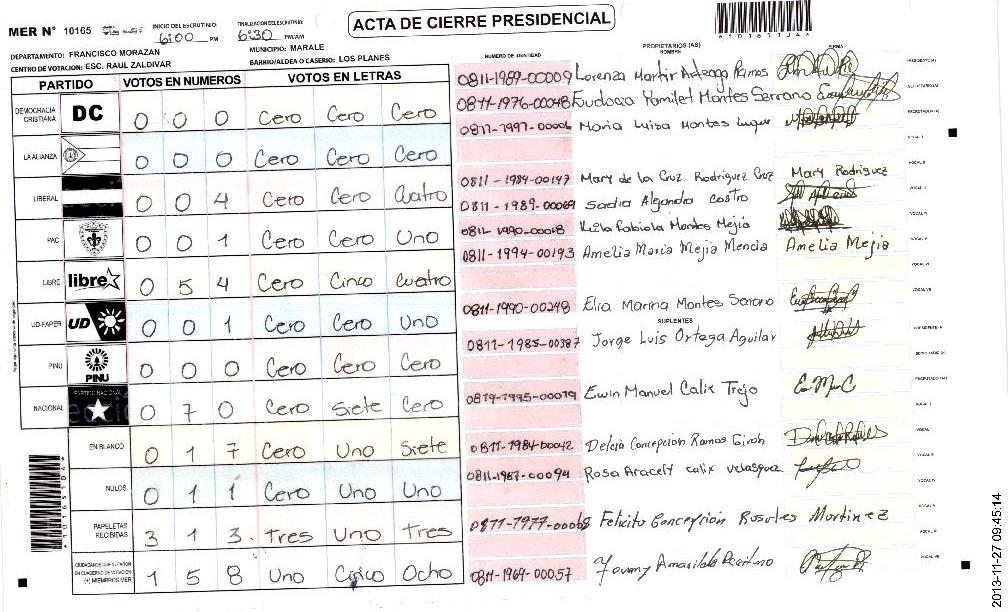 ACTA DE CIERRE PRESIDENCIAL
MER N° 10165
INICIO DEL ESCRUTINIO: 6:00 PM
FINALIZACION DEL ESCRUTINIO: 6:30 PM/AM
DEPARTAMENTO: FRANCISCO MORAZAN
MUNICIPIO: MARALE
CENTRO DE VOTACION: ESC. RAUL ZALDIVAR
BARRIO/ALDEA O CASERIO: LOS PLANES
PARTIDO VOTOS EN NUMEROS VOTOS EN LETRAS
DEMOCRACIA CRISTIANA DC 0 0 0 Cero Cero Cero
LA ALIANZA 0 0 0 Cero Cero Cero
LIBERAL 0 0 4 Cero Cero Cuatro
PAC 0 0 1 Cero Cero Uno
LIBRE libre 0 5 4 Cero Cinco Cuatro
UD-FAPER UD 0 0 1 Cero Cero Uno
PINU PINU 0 0 0 Cero Cero Cero
NACIONAL PARTIDO NACIONAL 0 7 0 Cero Siete Cero
EN BLANCO 0 1 7 Cero Uno Siete
NULOS 0 1 1 Cero Uno Uno
PAPELETAS RECIBIDAS 3 1 3 Tres Uno Tres
CIUDADANOS QUE VOTARON EN CUADERNO DE VOTACION (+) MIEMBROS MER 1 5 8 Uno Cinco Ocho
NUMERO DE IDENTIDAD PROPIETARIOS (AS) NOMBRE FIRMA
0811-1989-00009 Lorenza Martir Arteaga Ramos PRESIDENTE(A)
0811-1976-00048 Eudocia Yamilet Montes Serrano SECRETARIO(A)
0811-1997-00006 Maria Luisa Montes Luque ESCRUTADOR(A)
VOCAL I
0811-1984-00147 Mary de la Cruz Rodriguez Cruz Mary Rodriguez VOCAL II
0811-1989-00069 Sadia Alejandra Castro
0811-1990-0008 Keila Fabiola Montes Mejia VOCAL IV
0811-1994-00193 Amelia Maria Mejia Mencia Amelia Mejia VOCAL V
VOCAL VI
0811-1990-00248 Elia Marina Montes Serrano VOCAL VII
SUPLENTES
0811-1985-00387 Jorge Luis Ortega Aguilar PRESIDENTE(A)
SECRETARIO(A)
0819-1995-00079 Ewin Manuel Calix Trejo ESCRUTADOR(A)
VOCAL I
0811-1984-00042 Delcia Concepcion Ramos Giron
0811-1967-00094 Rosa Aracely calix velasquez
0811-1977-00068 Felicito Concepcion Rosales Martinez
0811-1969-00057 Yovany Amarildo
2013-11-27 09:45:14